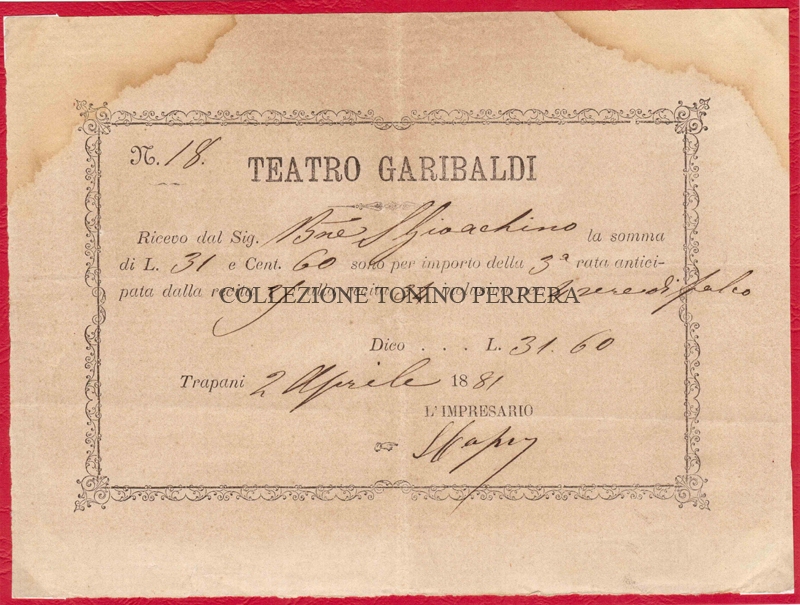 N. 18.
TEATRO GARIBALDI
Ricevo dal Sig. Bne S. Gioachino la somma
di L. 31 e Cent. 60 sono per importo della 3ª rata antici-
pata dalla recita alla recita inclusive palco
COLLEZIONE TONINO PERRERA
Dico . . . L. 31. 60
Trapani 2 Aprile 1881
L'IMPRESARIO